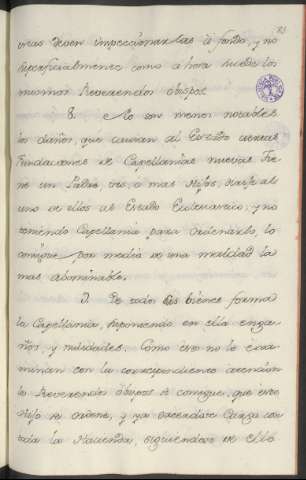 deven impeccionarlas à fondo, y no
superficialmente como ahora hacen los
mismos Reverendos obispos.
8. No son menos notables
los daños, que causan al Estado
Fundaciones de Capellanias nuevas. Tie
ne un Padre tres, ó mas Hijos,
uno de ellos al Estado Eclesiastico; y no
teniendo Capellania para Ordenarlo, lo
consigue por medio de una maldad la
mas abominable.
9. De todos los bienes forma
la Capellania, suponiendo en ella enga-
ños, y nulidades. Como esto no lo exa-
minan con la correspondiente atencion
los Reverendos obispos se consigue, que este
Hijo se ordene, y ya Sacerdote carga con
toda la Hacienda, siguiendose de ello